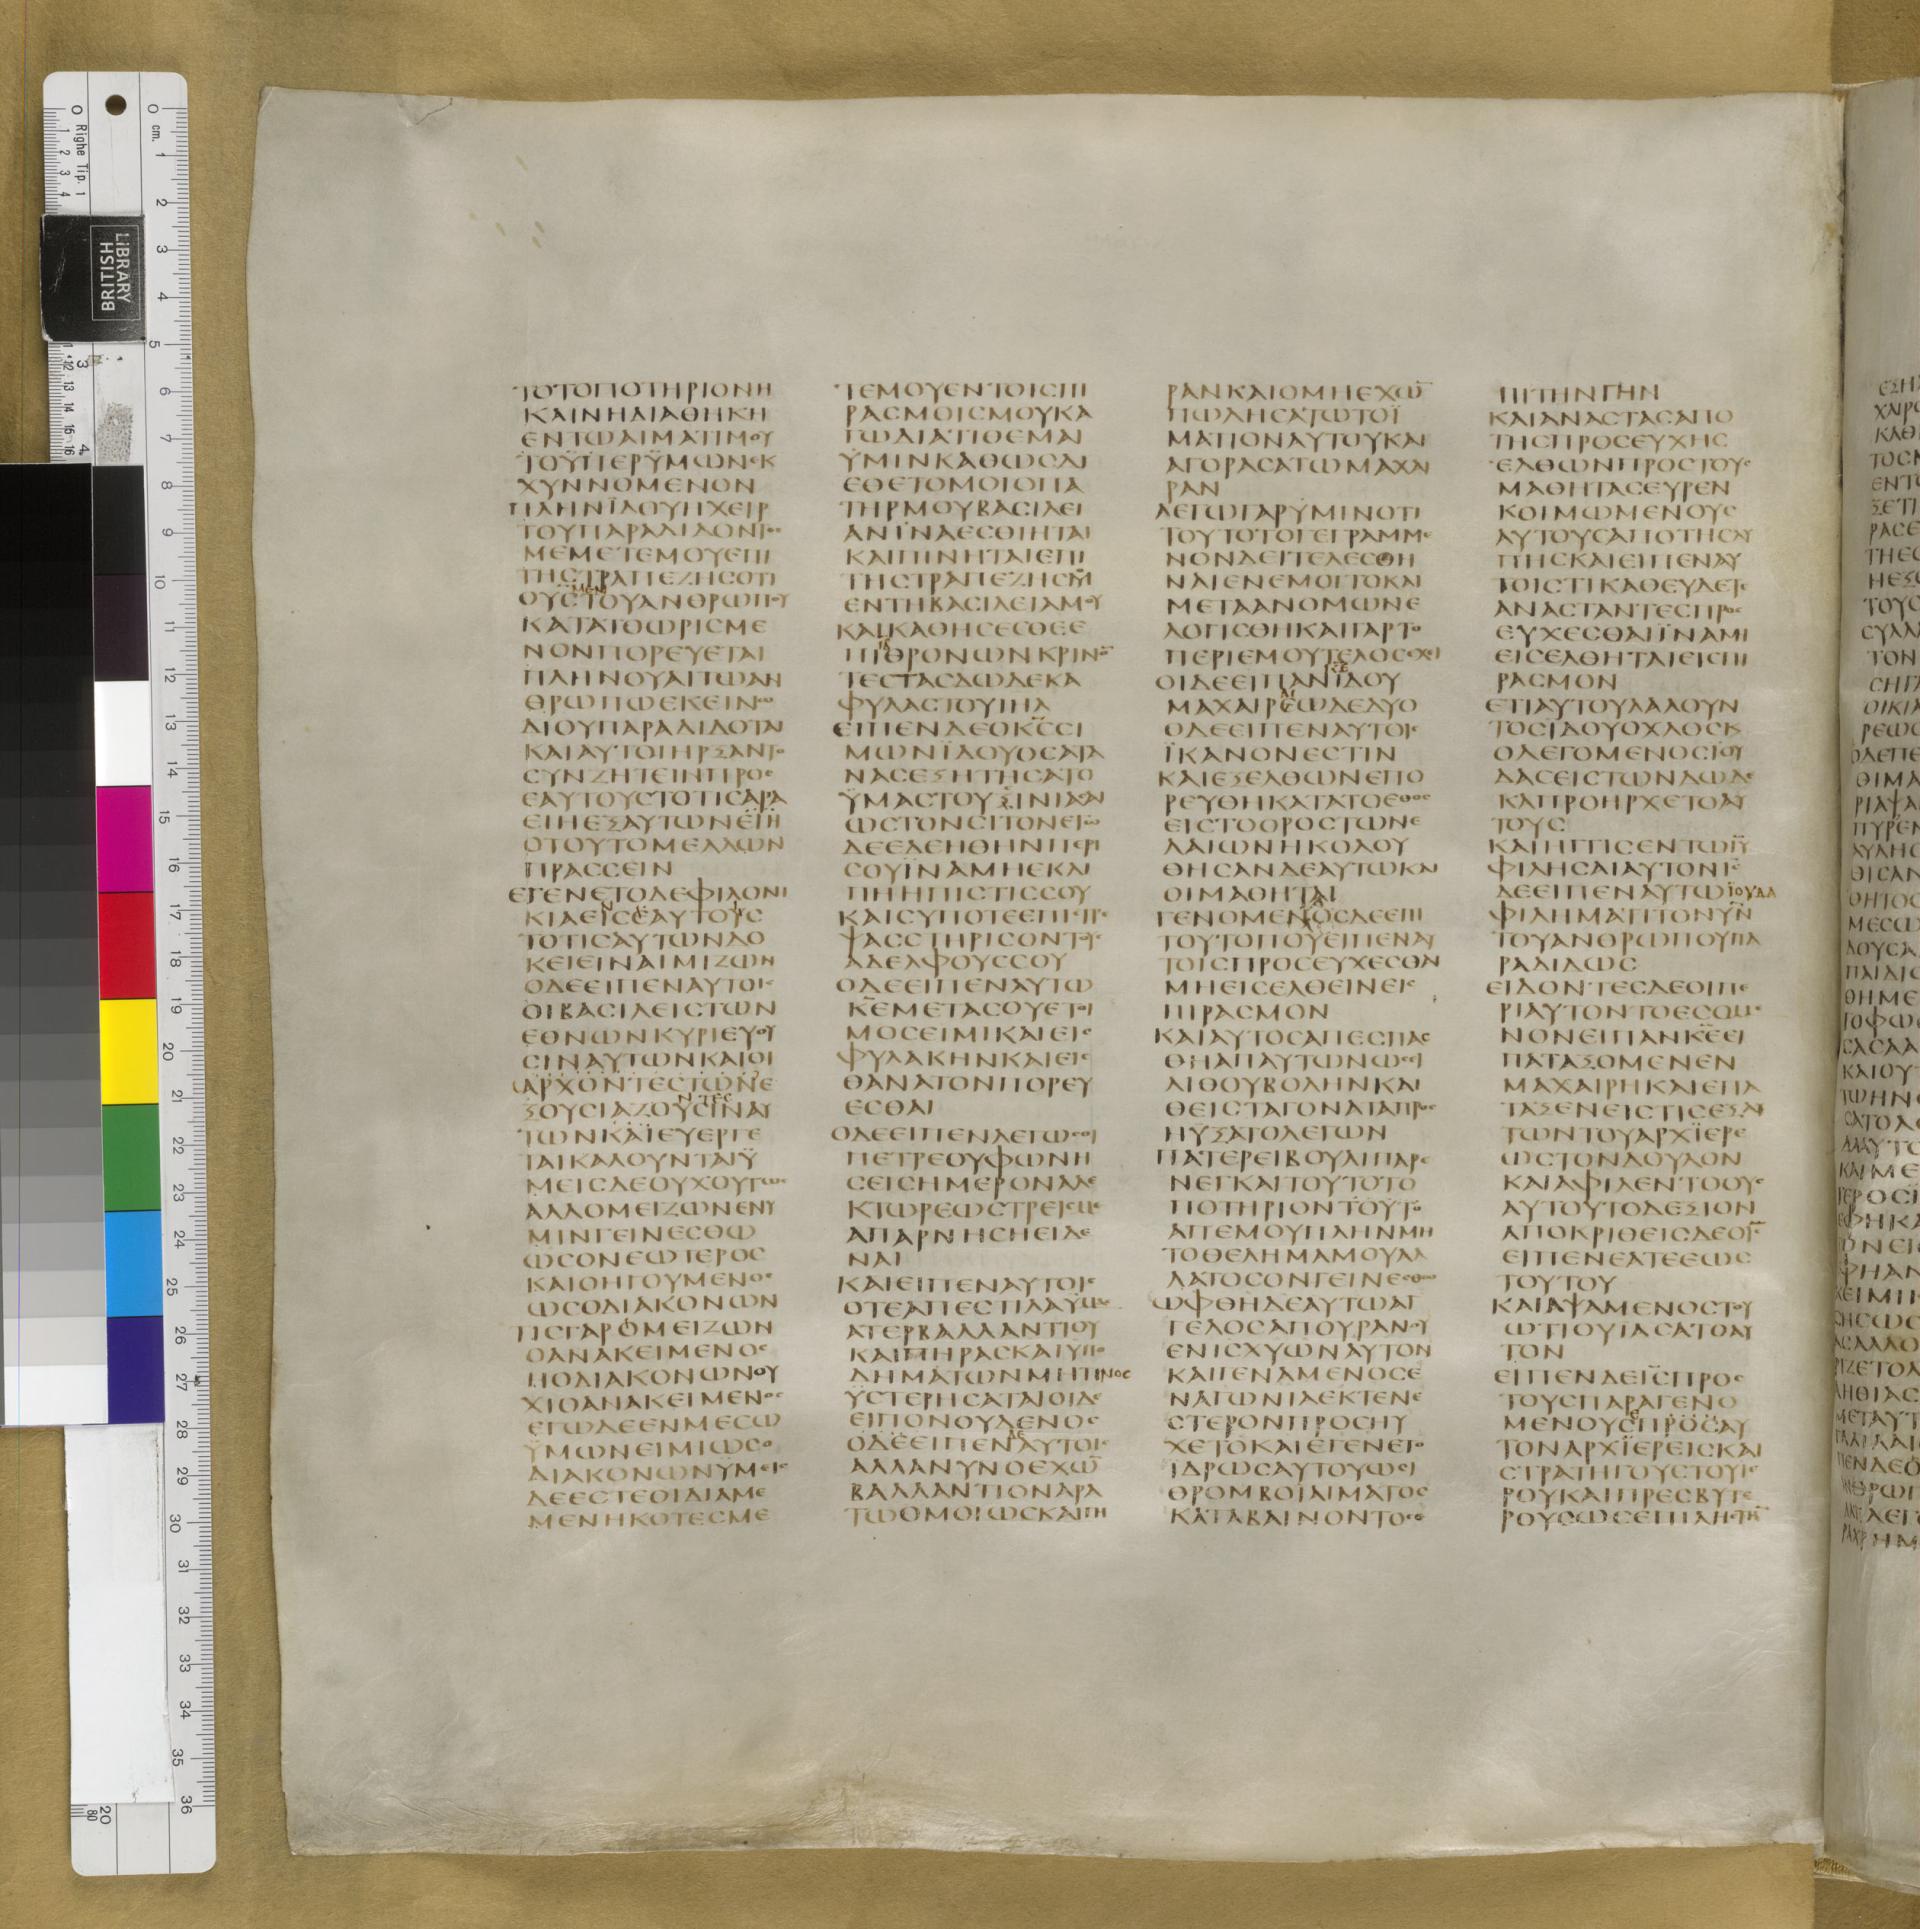 ΤΟΤΟΠΟΤΗΡΙΟΝΗ
ΚΑΙΝΗΔΙΑΘΗΚΗ
ΕΝΤΩΑΙΜΑΤΙΜΟΥ
ΤΟΫΠΕΡΫΜΩΝΕΚ
ΧΥΝΝΟΜΕΝΟΝ
ΠΛΗΝΪΔΟΥΗΧΕΙΡ
ΤΟΥΠΑΡΑΔΙΔΟΝΤΟΣ
ΜΕΜΕΤΕΜΟΥΕΠΙ
ΤΗϹΤΡΑΠΕΖΗϹΟΤΙ
ΜΕΝ
ΟΥϹΤΟΥΑΝΘΡΩΠΟΥ
ΚΑΤΑΤΟΩΡΙϹΜΕ
ΝΟΝΠΟΡΕΥΕΤΑΙ
ΠΛΗΝΟΥΑΙΤΩΑΝ
ΘΡΩΠΩΕΚΕΙΝΩ
ΔΙΟΥΠΑΡΑΔΙΔΟΤΑΙ
ΚΑΙΑΥΤΟΙΗΡΞΑΝΤΟ
ϹΥΝΖΗΤΕΙΝΠΡΟϹ
ΕΑΥΤΟΥϹΤΟΤΙϹΑΡΑ
ΕΙΗΕΞΑΥΤΩΝΕΙΗ
ΟΤΟΥΤΟΜΕΛΛΩΝ
ΠΡΑϹϹΕΙΝ
ΕΓΕΝΕΤΟΔΕΦΙΛΟΝΙ
ΚΙΑΕΙϹΕΑΥΤΟΥϹ
ΤΟΤΙϹΑΥΤΩΝΔΟ
ΚΕΙΕΙΝΑΙΜΙΖΩΝ
ΟΔΕΕΙΠΕΝΑΥΤΟΙϹ
ΟΙΒΑϹΙΛΕΙϹΤΩΝ
ΕΘΝΩΝΚΥΡΙΕΥΟΥ
ϹΙΝΑΥΤΩΝΚΑΙΟΙ
ΑΡΧΟΝΤΕϹΤΩΝΕ
ΝΤΕϹ
ΞΟΥϹΙΑΖΟΥϹΙΝΑΥ
ΤΩΝΚΑΪΕΥΕΡΓΕ
ΤΑΙΚΑΛΟΥΝΤΑΙΫ
ΜΕΙϹΔΕΟΥΧΟΥΤΩϹ
ΑΛΛΟΜΕΙΖΩΝΕΝΥ
ΜΙΝΓΕΙΝΕϹΘΩ
ΩϹΟΝΕΩΤΕΡΟϹ
ΚΑΙΟΗΓΟΥΜΕΝΟϹ
ΩϹΟΔΙΑΚΟΝΩΝ
ΤΙϹΓΑΡΟΜΕΙΖΩΝ
ΟΑΝΑΚΕΙΜΕΝΟϹ
ΗΟΔΙΑΚΟΝΩΝΟΥ
ΧΙΟΑΝΑΚΕΙΜΕΝΟϹ
ΕΓΩΔΕΕΝΜΕϹΩ
ΫΜΩΝΕΙΜΙΩϹΟ
ΔΙΑΚΟΝΩΝΫΜΕΙϹ
ΔΕΕϹΤΕΟΙΔΙΑΜΕ
ΜΕΝΗΚΟΤΕϹΜΕ
ΤΕΜΟΥΕΝΤΟΙϹΠΙ
ΡΑϹΜΟΙϹΜΟΥΚΑ
ΓΩΔΙΑΤΙΘΕΜΑΙ
ΫΜΙΝΚΑΘΩϹΔΙ
ΕΘΕΤΟΜΟΙΟΠΑ
ΤΗΡΜΟΥΒΑϹΙΛΕΙ
ΑΝΪΝΑΕϹΘΙΗΤΑΙ
ΚΑΙΠΙΝΗΤΑΙΕΠΙ
ΤΗϹΤΡΑΠΕΖΗϹΜ
ΕΝΤΗΒΑϹΙΛΕΙΑΜΟΥ
ΚΑΙΚΑΘΗϹΕϹΘΕΕ
ΠΙΘΡΟΝΩΝΚΡΙΝΟ̅
ΤΕϹΤΑϹΔΩΔΕΚΑ
ΦΥΛΑϹΤΟΥΙΗΛ
ΕΙΠΕΝΔΕΟΚ̅Ϲ̅ϹΙ
ΜΩΝΪΔΟΥΟϹΑΤΑ
ΝΑϹΕΞΗΤΗϹΑΤΟ
ΫΜΑϹΤΟΥϹΙΝΙΑϹΑΙ
ΩϹΤΟΝϹΙΤΟΝΕΓΩ
ΔΕΕΔΕΗΘΗΝΠΕΡΙ
ϹΟΥΪΝΑΜΗΕΚΛΙ
ΠΗΗΠΙϹΤΙϹϹΟΥ
ΚΑΙϹΥΠΟΤΕΕΠΙϹΤΡΕ
ΨΑϹϹΤΗΡΙϹΟΝΤΟΥϹ
ΑΔΕΛΦΟΥϹϹΟΥ
ΟΔΕΕΙΠΕΝΑΥΤΩ
Κ̅Ε̅ΜΕΤΑϹΟΥΕΤΟΙ
ΜΟϹΕΙΜΙΚΑΙΕΙϹ
ΦΥΛΑΚΗΝΚΑΙΕΙϹ
ΘΑΝΑΤΟΝΠΟΡΕΥ
ΕϹΘΑΙ
ΟΔΕΕΙΠΕΝΛΕΓΩϹΟΙ
ΠΕΤΡΕΟΥΦΩΝΗ
ϹΕΙϹΗΜΕΡΟΝΑΛΕ
ΚΤΩΡΕΩϹΤΡΕΙϹΜΕ
ΑΠΑΡΝΗϹΗΕΙΔΕ
ΝΑΙ
ΚΑΙΕΙΠΕΝΑΥΤΟΙϹ
ΟΤΕΑΠΕϹΤΙΛΑΫΜΑϹ
ΑΤΕΡΒΑΛΛΑΝΤΙΟΥ
ΚΑΙΠΗΡΑϹΚΑΙΥΠΟ
ΔΗΜΑΤΩΝΜΗΤΙΝΟϹ
ΫϹΤΕΡΗϹΑΤΑΙΟΙΔΕ
ΕΙΠΟΝΟΥΔΕΝΟϹ
ΟΔΕΕΙΠΕΝΑΥΤΟΙϹ
ΑΛΛΑΝΥΝΟΕΧΩ̅
ΒΑΛΛΑΝΤΙΟΝΑΡΑ
ΤΩΟΜΟΙΩϹΚΑΙΠΗ
ΡΑΝΚΑΙΟΜΗΕΧΩ̅
ΠΩΛΗϹΑΤΩΤΟΪ
ΜΑΤΙΟΝΑΥΤΟΥΚΑΙ
ΑΓΟΡΑϹΑΤΩΜΑΧΑΙ
ΡΑΝ
ΛΕΓΩΓΑΡΫΜΙΝΟΤΙ
ΤΟΥΤΟΤΟΓΕΓΡΑΜΜΕ
ΝΟΝΔΕΙΤΕΛΕϹΘΗ
ΝΑΙΕΝΕΜΟΙΤΟΚΑΙ
ΜΕΤΑΑΝΟΜΩΝΕ
ΛΟΓΙϹΘΗΚΑΙΓΑΡΤΟ
ΠΕΡΙΕΜΟΥΤΕΛΟϹΕΧΙ
ΟΙΔΕΕΙΠΑΝΪΔΟΥ
ΜΑΧΑΙΡΕΩΔΕΔΥΟ
ΟΔΕΕΙΠΕΝΑΥΤΟΙϹ
ΪΚΑΝΟΝΕϹΤΙΝ
ΚΑΙΕΞΕΛΘΩΝΕΠΟ
ΡΕΥΘΗΚΑΤΑΤΟΕΘΟϹ
ΕΙϹΤΟΟΡΟϹΤΩΝΕ
ΛΑΙΩΝΗΚΟΛΟΥ
ΘΗϹΑΝΔΕΑΥΤΩΚΑΙ
ΟΙΜΑΘΗΤΑΙ
ΓΕΝΟΜΕΝΟϹΔΕΕΠΙ
ΤΟΥΤΟΠΟΥΕΙΠΕΝΑΥ
ΤΟΙϹΠΡΟϹΕΥΧΕϹΘΑΙ
ΜΗΕΙϹΕΛΘΕΙΝΕΙϹ
ΠΙΡΑϹΜΟΝ
ΚΑΙΑΥΤΟϹΑΠΕϹΠΑϹ
ΘΗΑΠΑΥΤΩΝΩϹΕΙ
ΛΙΘΟΥΒΟΛΗΝΚΑΙ
ΘΕΙϹΤΑΓΟΝΑΤΑΠΡΟϹ
ΗΫΞΑΤΟΛΕΓΩΝ
ΠΑΤΕΡΕΙΒΟΥΛΙΠΑΡΕ
ΝΕΓΚΑΙΤΟΥΤΟΤΟ
ΠΟΤΗΡΙΟΝΤΟΥΤΟ
ΑΠΕΜΟΥΠΛΗΝΜΗ
ΤΟΘΕΛΗΜΑΜΟΥΑΛ
ΛΑΤΟϹΟΝΓΕΙΝΕϹΘΩ
ΩΦΘΗΔΕΑΥΤΩΑΓ
ΓΕΛΟϹΑΠΟΥΡΑΝΟΥ
ΕΝΙϹΧΥΩΝΑΥΤΟΝ
ΚΑΙΓΕΝΑΜΕΝΟϹΕ
ΝΑΓΩΝΙΑΕΚΤΕΝΕ
ϹΤΕΡΟΝΠΡΟϹΗΥ
ΧΕΤΟΚΑΙΕΓΕΝΕΤΟ
ΙΔΡΩϹΑΥΤΟΥΩϹΙ
ΘΡΟΜΒΟΙΑΙΜΑΤΟϹ
ΚΑΤΑΒΑΙΝΟΝΤΟϹΕ
ΠΙΤΗΝΓΗΝ
ΚΑΙΑΝΑϹΤΑϹΑΠΟ
ΤΗϹΠΡΟϹΕΥΧΗϹ
ΕΛΘΩΝΠΡΟϹΤΟΥϹ
ΜΑΘΗΤΑϹΕΥΡΕΝ
ΚΟΙΜΩΜΕΝΟΥϹ
ΑΥΤΟΥϹΑΠΟΤΗϹΛΥ
ΠΗϹΚΑΙΕΙΠΕΝΑΥ
ΤΟΙϹΤΙΚΑΘΕΥΔΕΤΕ
ΑΝΑϹΤΑΝΤΕϹΠΡΟϹ
ΕΥΧΕϹΘΑΙΪΝΑΜΙ
ΕΙϹΕΛΘΗΤΑΙΕΙϹΠΙ
ΡΑϹΜΟΝ
ΕΤΙΑΥΤΟΥΛΑΛΟΥΝ
ΤΟϹΪΔΟΥΟΧΛΟϹΚ
ΟΛΕΓΟΜΕΝΟϹΪΟΥ
ΔΑϹΕΙϹΤΩΝΔΩΔΕ
ΚΑΠΡΟΗΡΧΕΤΟΑΥ
ΤΟΥϹ
ΚΑΙΗΓΓΙϹΕΝΤΩΙ̅Υ̅
ΦΙΛΗϹΑΙΑΥΤΟΝΙ̅Ϲ̅
ΔΕΕΙΠΕΝΑΥΤΩΪΟΥΔΑ
ΦΙΛΗΜΑΤΙΤΟΝΥ̅Ν̅
ΤΟΥΑΝΘΡΩΠΟΥΠΑ
ΡΑΔΙΔΩϹ
ΕΙΔΟΝΤΕϹΔΕΟΙΠΕ
ΡΙΑΥΤΟΝΤΟΕϹΟΜΕ
ΝΟΝΕΙΠΑΝΚ̅Ε̅ΕΙ
ΠΑΤΑΞΟΜΕΝΕΝ
ΜΑΧΑΙΡΗΚΑΙΕΠΑ
ΤΑΞΕΝΕΙϹΤΙϹΕΞΑΥ
ΤΩΝΤΟΥΑΡΧΪΕΡΕ
ΩϹΤΟΝΔΟΥΛΟΝ
ΚΑΙΑΦΙΛΕΝΤΟΟΥϹ
ΑΥΤΟΥΤΟΔΕΞΙΟΝ
ΑΠΟΚΡΙΘΕΙϹΔΕΟΙ̅Ϲ̅
ΕΙΠΕΝΕΑΤΕΕΩϹ
ΤΟΥΤΟΥ
ΚΑΙΑΨΑΜΕΝΟϹΤΟΥ
ΩΤΙΟΥΪΑϹΑΤΟΑΥ
ΤΟΝ
ΕΙΠΕΝΔΕΙ̅Ϲ̅ΠΡΟϹ
ΤΟΥϹΠΑΡΑΓΕΝΟ
ΜΕΝΟΥϹΠΡΟϹΑΥ
ΤΟΝΑΡΧΪΕΡΕΙϹΚΑΙ
ϹΤΡΑΤΗΓΟΥϹΤΟΥΙΕ
ΡΟΥΚΑΙΠΡΕϹΒΥΤΕ
ΡΟΥϹΩϹΕΠΙΛΗϹΤΗ̅
BRITISH
LIBRARY
Righe Tip. 1
cm.